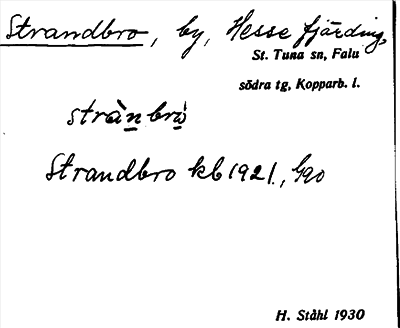 Strandbro, by, Hesse fjärding,
St. Tuna sn, Falu
södra tg, Kopparb. l.
stràn brò
Strandbro kb 1921,
H. Ståhl 1930